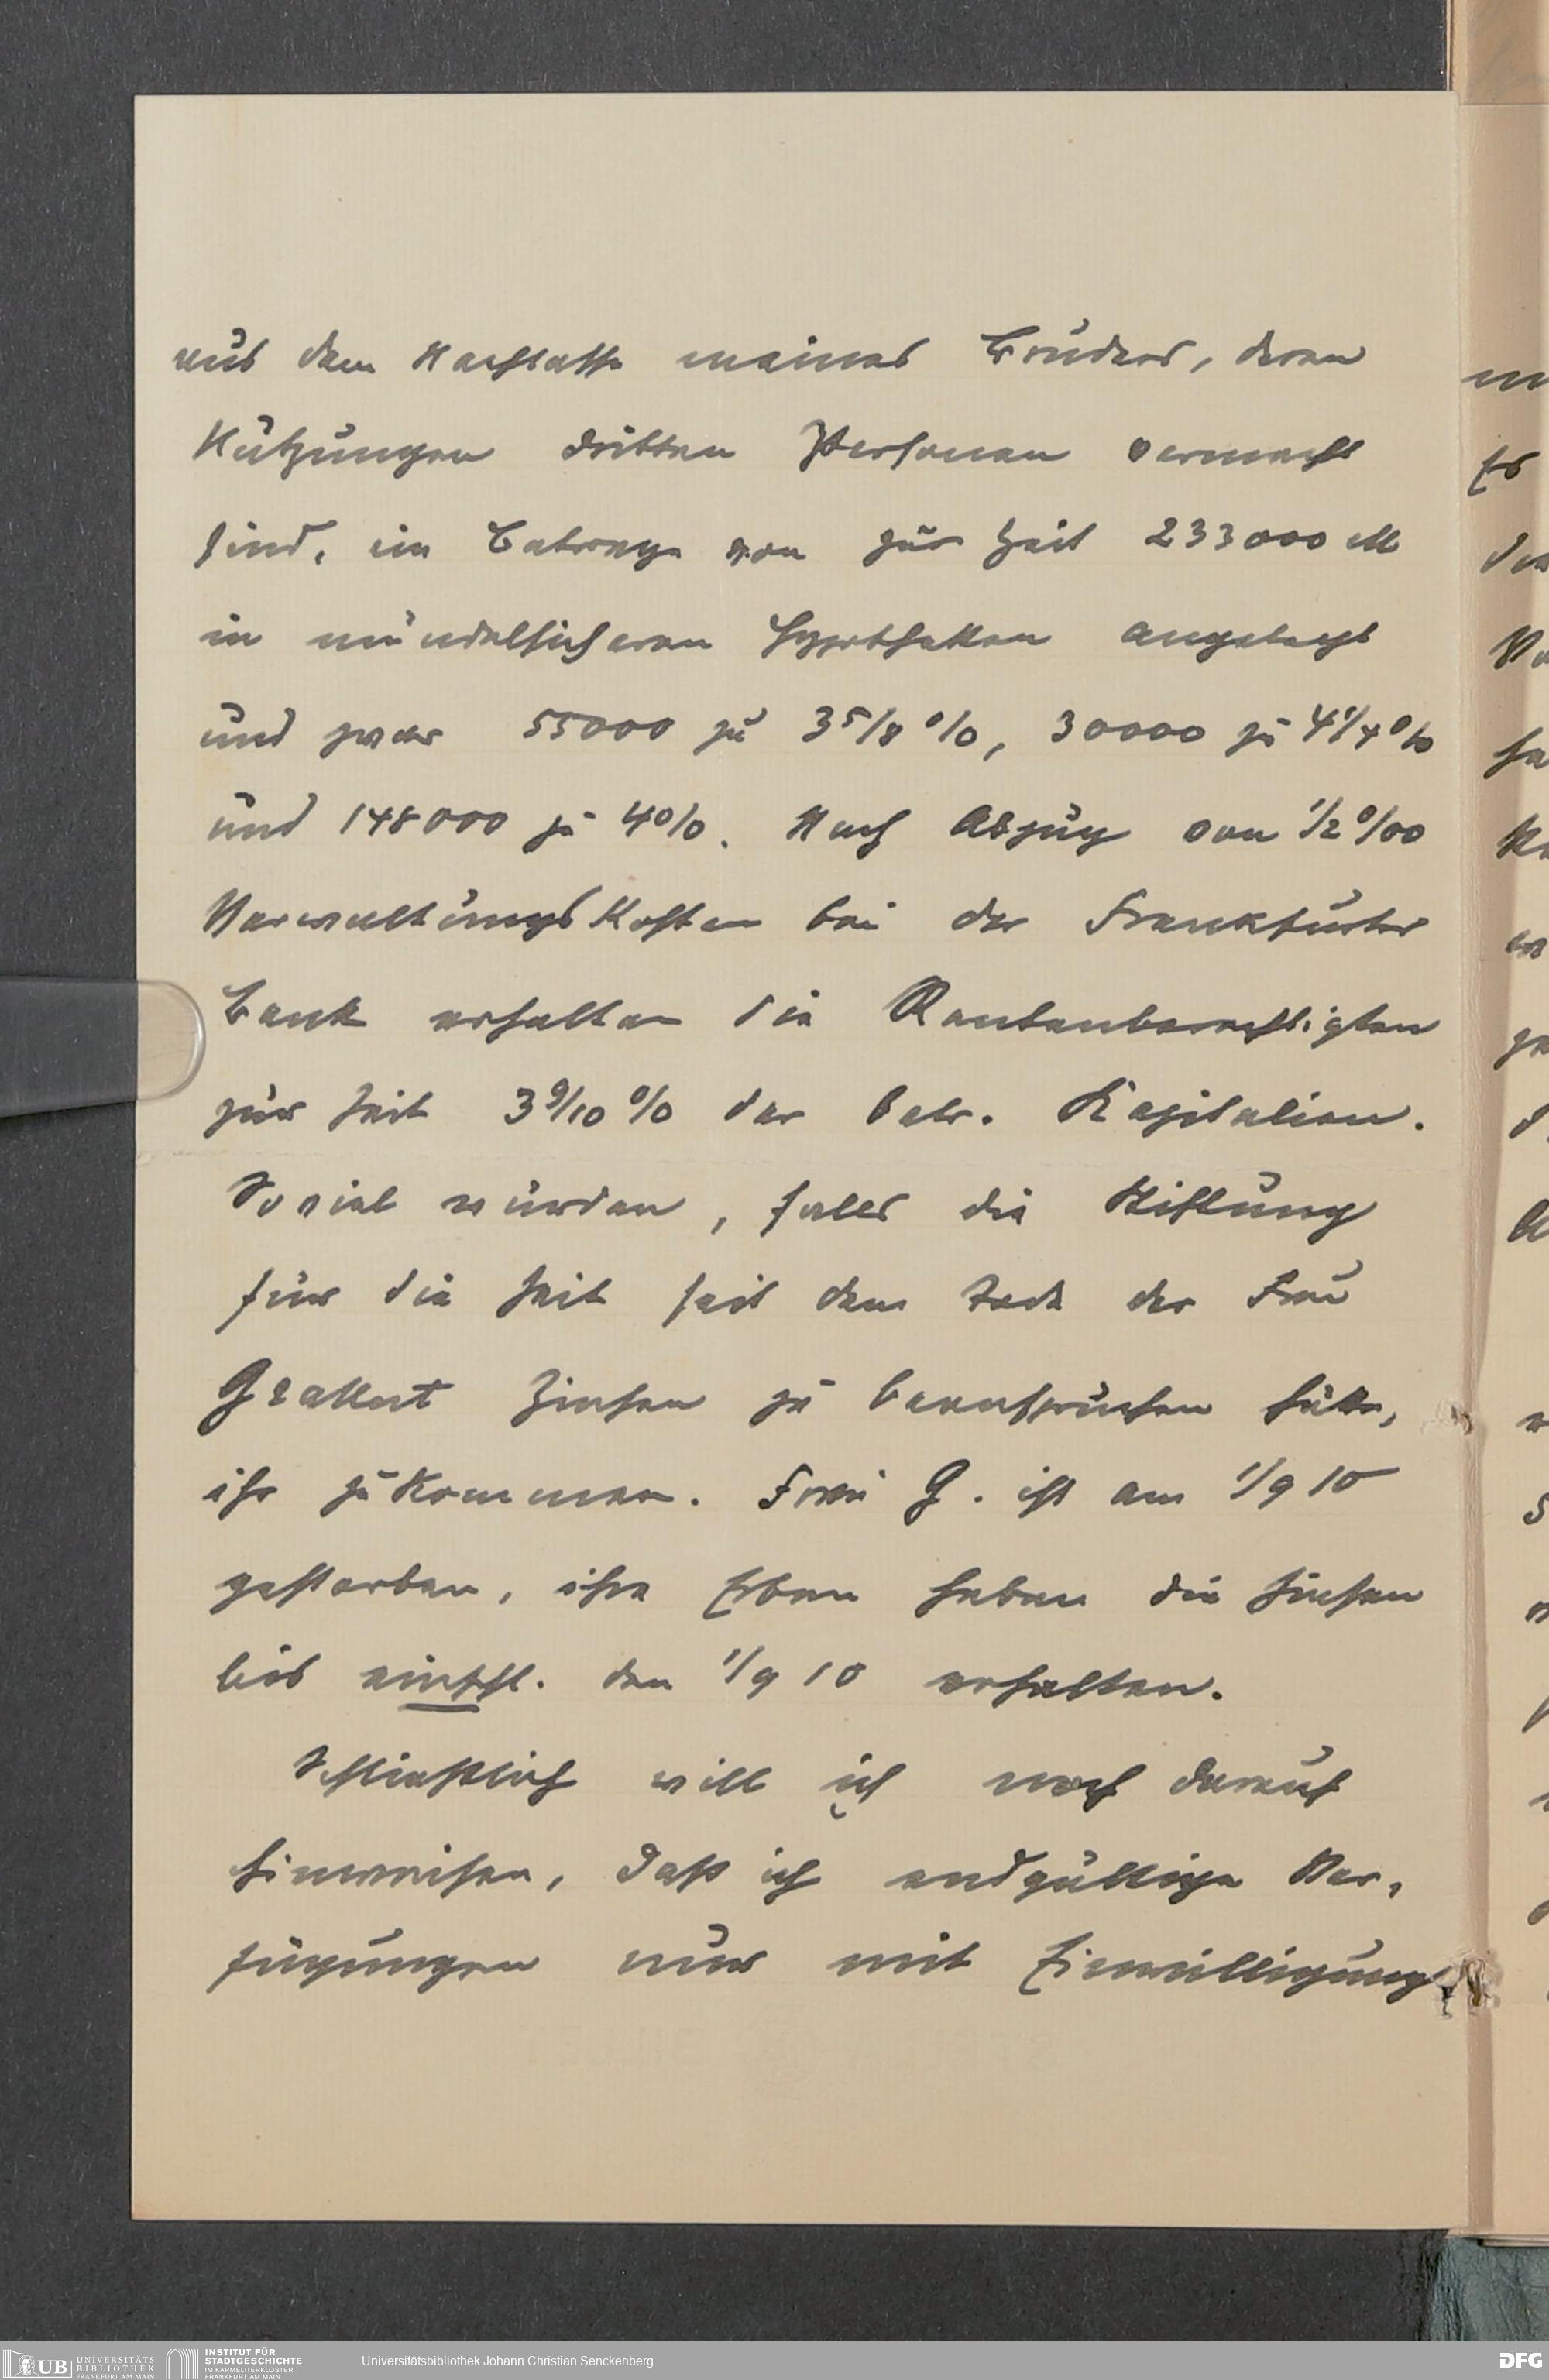 aus dem Nachlasse meines Bruders, deren
Nutzungen dritten Personen vermacht
sind, im Betrage von zur Zeit 233000 M
in mündelsicheren Hypotheken angelegt
und zwar 55000 zu 3 5/8 %, 30000 zu 4 1/4 %
und 148000 zu 4%. Nach Abzug von 1/2 ‰
Verwaltungskosten bei der Frankfurter
Bank erhalten die Rentenberechtigten
zur Zeit 3 9/10 % der betr. Kapitalien.
Soviel würden, falls die Stiftung
für die Zeit seit dem Tode der Frau
Grallert Zinsen zu beanspruchen hätte,
ihr zukommen. Frau G. ist am 1/9 10
gestorben, ihre Erben haben die Zinsen
bis einschl. den 1/9 10 erhalten.
Schließlich will ich noch darauf
hinweisen, daß ich endgültige Ver-
fügungen nur mit Einwilligung
UB UNIVERSITÄTS BIBLIOTHEK FRANKFURT AM MAIN
INSTITUT FÜR STADTGESCHICHTE IM KARMELITERKLOSTER FRANKFURT AM MAIN
Universitätsbibliothek Johann Christian Senckenberg
DFG